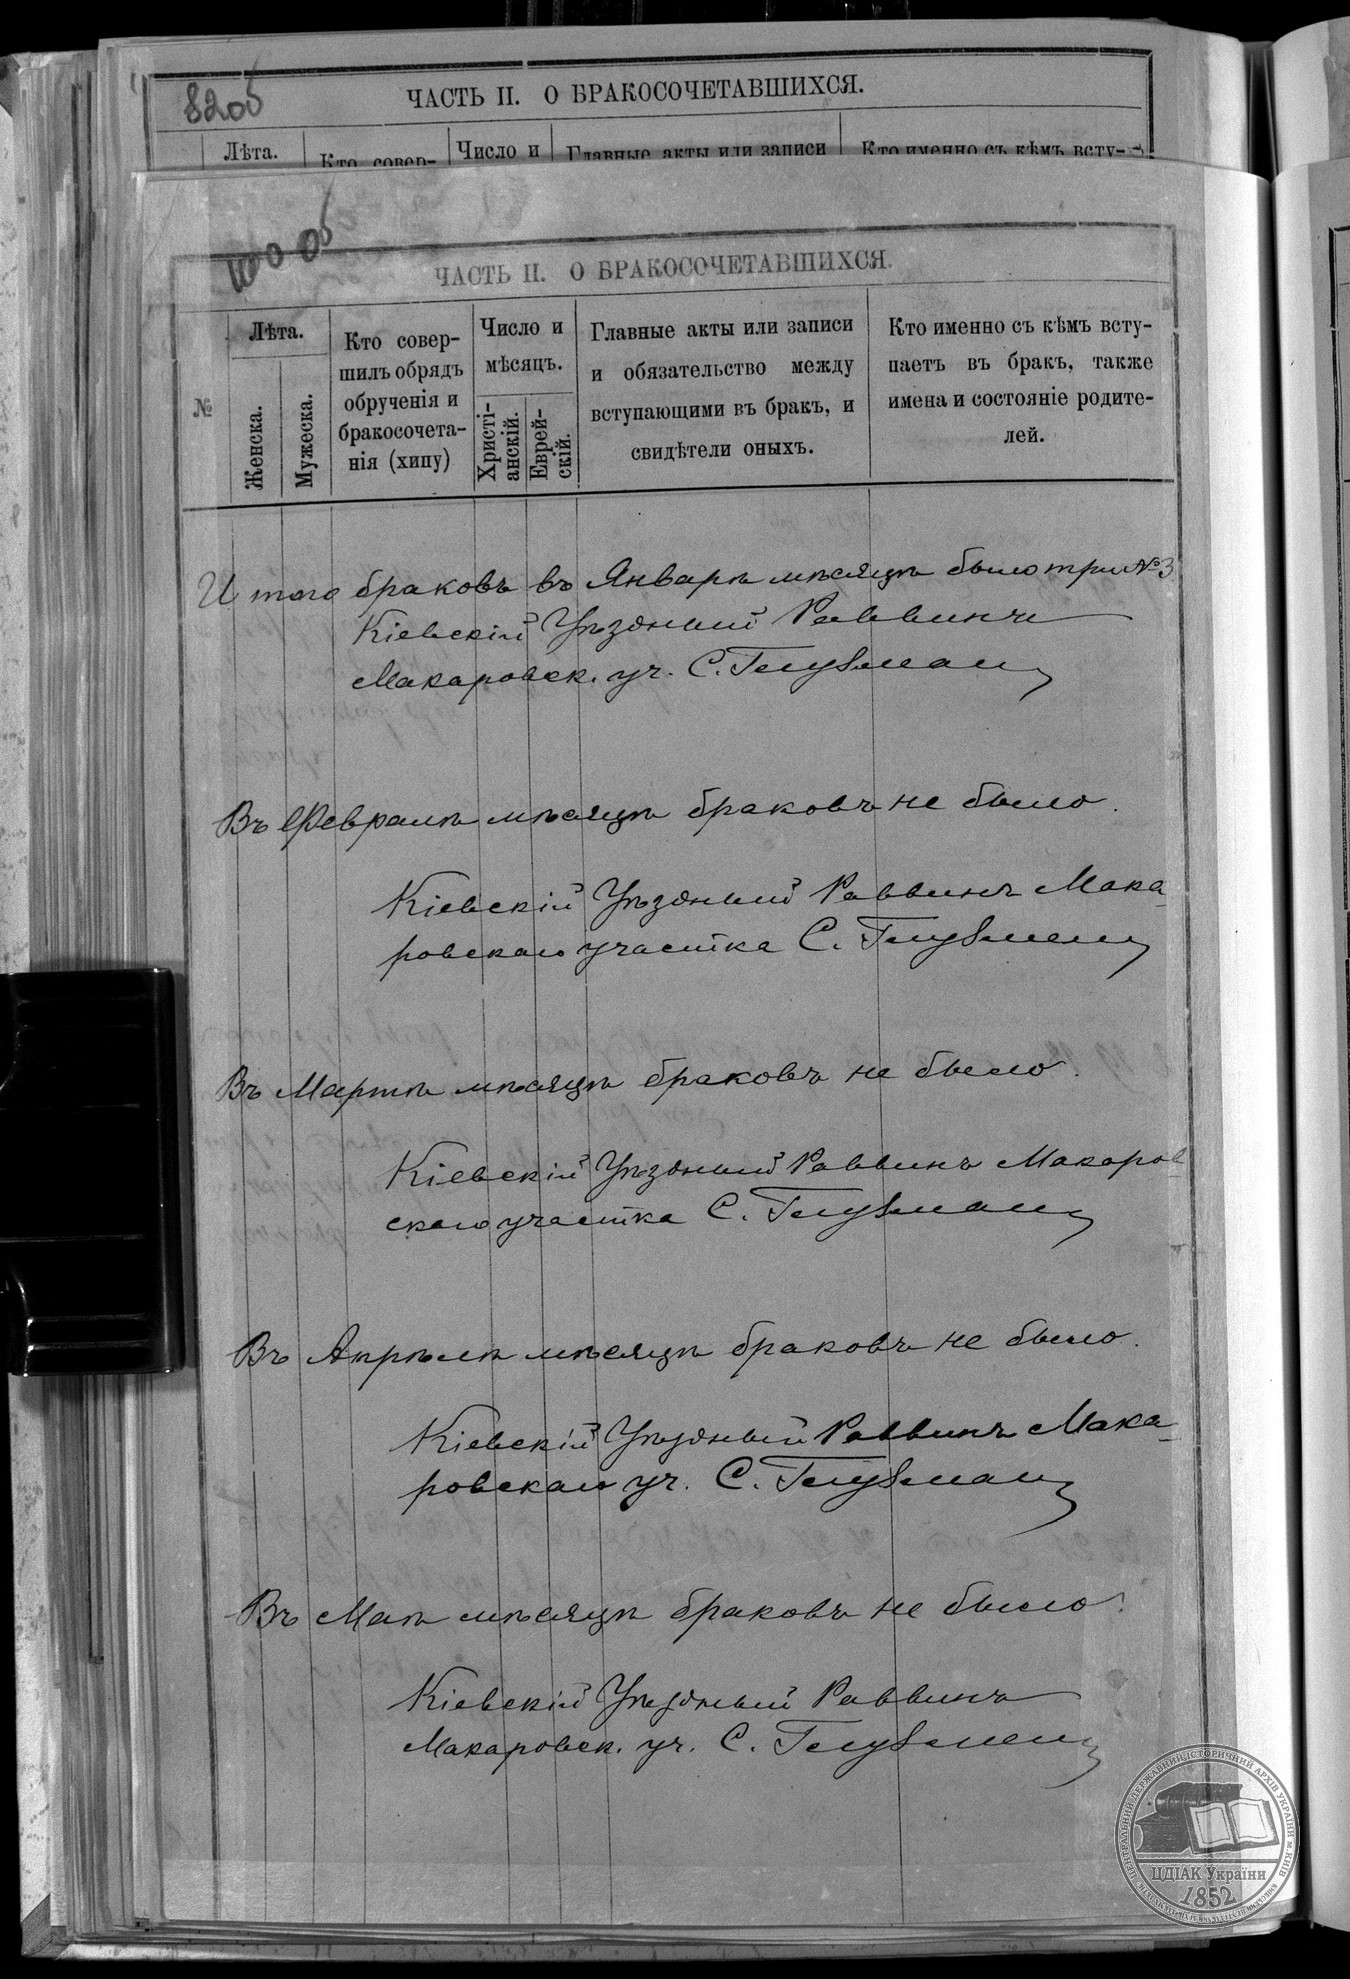 82об
ЧАСТЬ II. О БРАКОСОЧЕТАВШИХСЯ.
Лѣта.
Кто совер-
Число и
Главные акты или записи
Кто именно съ кѣмъ всту-
100 об
ЧАСТЬ II. О БРАКОСОЧЕТАВШИХСЯ.
№
Лѣта.
Женска.
Мужеска.
Кто совер-
шилъ обрядъ
обрученія и
бракосочета-
нія (хипу)
Число и
мѣсяцъ.
Христі-
анскій.
Еврей-
скій.
Главные акты или записи
и обязательство между
вступающими въ бракъ, и
свидѣтели оныхъ.
Кто именно съ кѣмъ всту-
паетъ въ бракъ, также
имена и состояніе родите-
лей.
Итого браковъ въ Январѣ мѣсяцѣ было три №3
Кіевскій Уѣздный Раввинъ
Макаровск. уч. С. Глузман
Въ Февралѣ мѣсяцѣ браковъ не было.
Кіевскій Уѣздный Раввинъ Мака-
ровскаго участка С. Глузман
Въ Мартѣ мѣсяцѣ браковъ не было.
Кіевскій Уѣздный Раввинъ Макаров-
скаго участка С. Глузман
Въ Апрѣлѣ мѣсяцѣ браковъ не было.
Кіевскій Уѣздный Раввинъ Мака-
ровскаго уч. С. Глузман
Въ Маѣ мѣсяцѣ браковъ не было.
Кіевскій Уѣздный Раввинъ
Макаровск. уч. С. Глузман
ЦЕНТРАЛЬНИЙ ДЕРЖАВНИЙ ІСТОРИЧНИЙ АРХІВ УКРАЇНИ м. КИЇВ
ЦДІАК України
1852